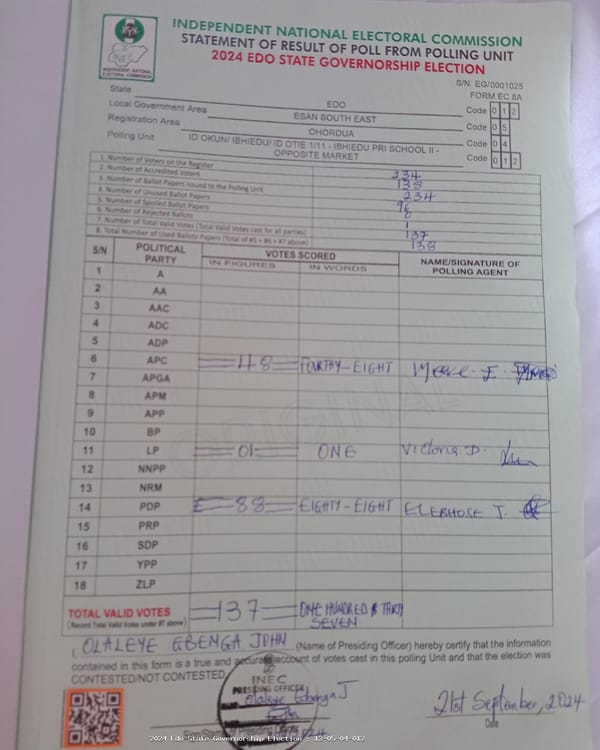 INEC
INDEPENDENT NATIONAL ELECTORAL COMMISSION
INDEPENDENT NATIONAL ELECTORAL COMMISSION
STATEMENT OF RESULT OF POLL FROM POLLING UNIT
2024 EDO STATE GOVERNORSHIP ELECTION
S/N: EG/0001025
FORM EC 8A
State EDO Code 0 1 2
Local Government Area ESAN SOUTH EAST Code 0 5
Registration Area OHORDUA Code 0 4
Polling Unit ID OKUN/ IBHIEDU/ ID OTIE 1/11 - IBHIEDU PRI SCHOOL II - OPPOSITE MARKET Code 0 1 2
1. Number of Voters on the Register 234
2. Number of Accredited Voters 138
3. Number of Ballot Papers Issued to the Polling Unit 234
4. Number of Unused Ballot Papers 96
5. Number of Spoiled Ballot Papers
6. Number of Rejected Ballots 1
7. Number of Total Valid Votes (Total Valid Votes cast for all parties) 137
8. Total Number of Used Ballots Papers (Total of #5 + #6 + #7 above) 138
S/N POLITICAL PARTY VOTES SCORED NAME/SIGNATURE OF POLLING AGENT
IN FIGURES IN WORDS
1 A
2 AA
3 AAC
4 ADC
5 ADP
6 APC 48 FOURTHY-EIGHT
7 APGA
8 APM
9 APP
10 BP
11 LP 01 ONE Victoria D.
12 NNPP
13 NRM
14 PDP 88 EIGHTY-EIGHT ELEBHOSE J.
15 PRP
16 SDP
17 YPP
18 ZLP
TOTAL VALID VOTES 137 ONE HUNDRED & THIRTY SEVEN
(Record Total Valid Votes under #7 above)
I, OLALEYE GBENGA JOHN (Name of Presiding Officer) hereby certify that the information
contained in this form is a true and accurate account of votes cast in this polling Unit and that the election was
CONTESTED/NOT CONTESTED
INEC
PRESIDING OFFICER
Olaleye Gbenga J
21st September, 2024
Date
2024 Edo State Governorship Election : 12-05-04-012